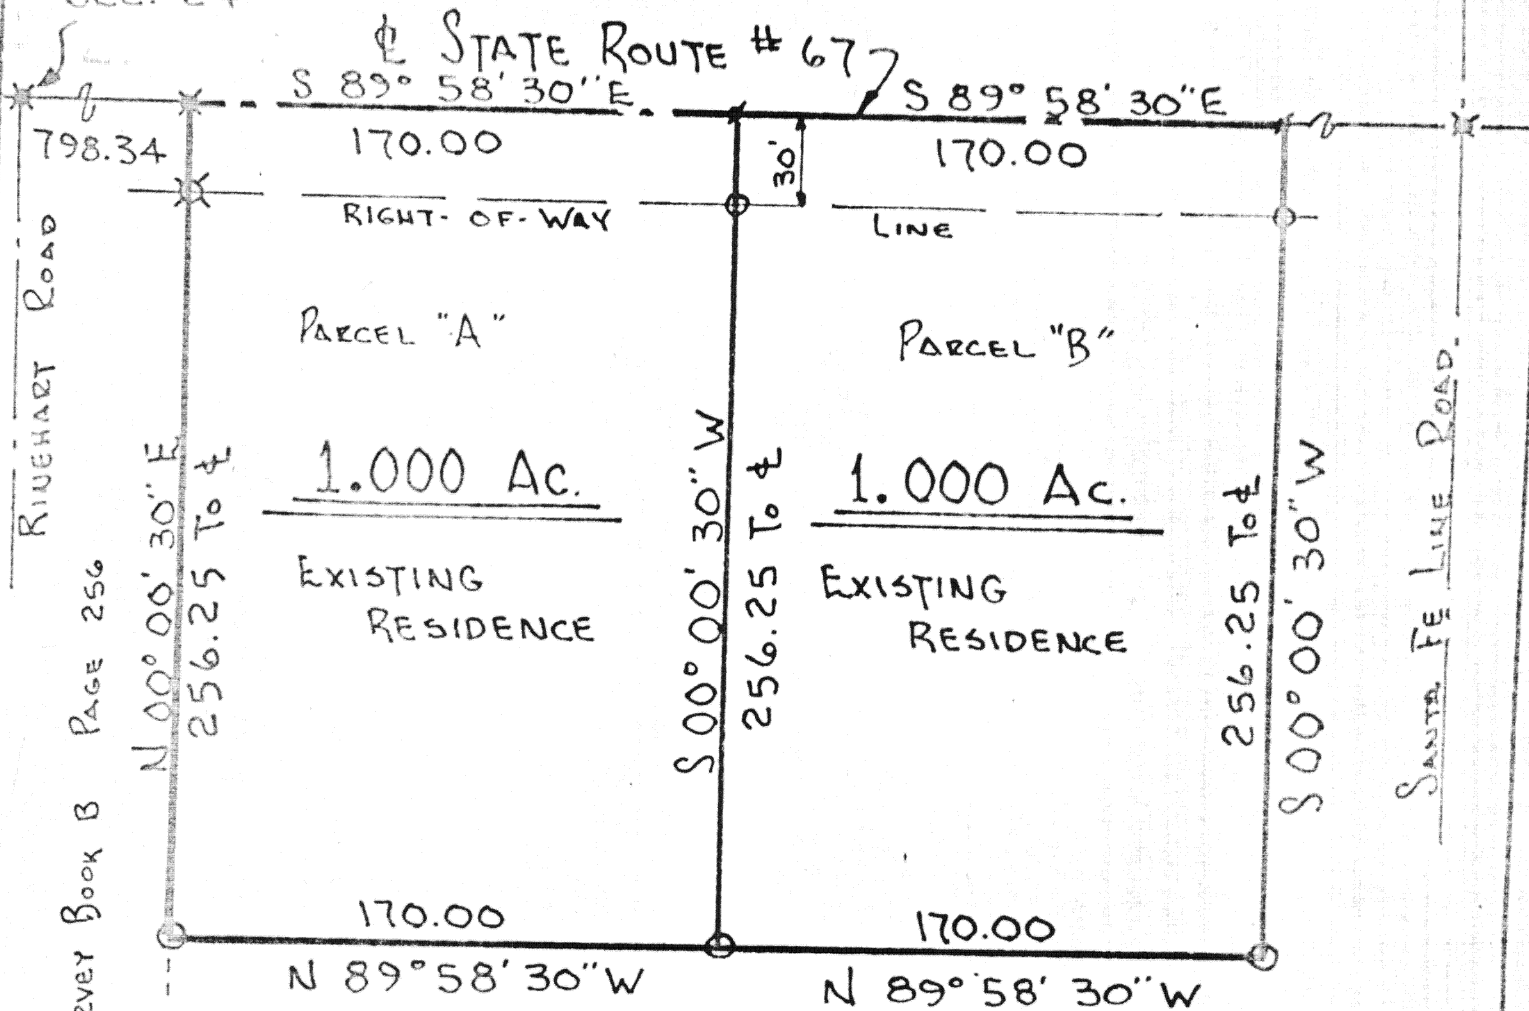 SEC. 24
℄ STATE ROUTE # 67
S 89° 58' 30" E
S 89° 58' 30" E
798.34
170.00
170.00
30'
RIGHT-OF-WAY
LINE
RINEHART ROAD
PARCEL "A"
PARCEL "B"
1.000 AC.
1.000 AC.
EXISTING
RESIDENCE
EXISTING
RESIDENCE
N 00° 00' 30" E
256.25 TO ℄
S 00° 00' 30" W
256.25 TO ℄
256.25 TO ℄
S 00° 00' 30" W
SANTA FE LINE ROAD.
BOOK B PAGE 256
170.00
170.00
N 89° 58' 30" W
N 89° 58' 30" W